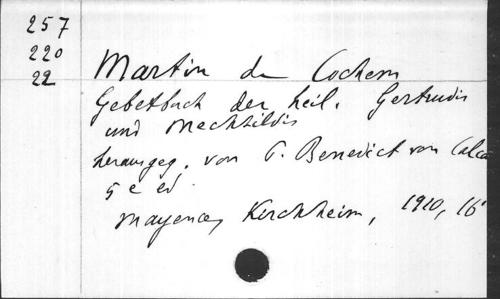 257
220
22
Martin de Cochem
Gebetbuch der heil. Gertrudis
und Mechtildis
herausgeg. von P. Benedict von Calca
5e ed.
Mayence, Kirchheim, 1910, 16°